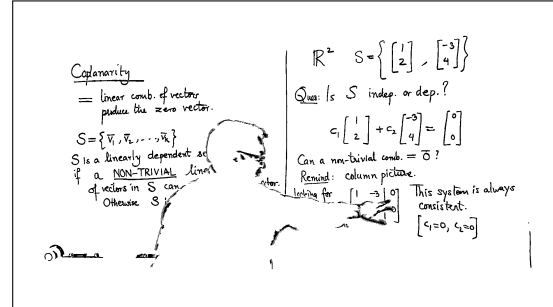 Coplanarity
= linear comb. of vectors
produce the zero vector.
S = { v̅₁, v̅₂, . . . , v̅ₖ }
S is a linearly dependent
if a NON-TRIVIAL
of vectors in S can
Otherwise S
ℝ² S = { [1 2], [-3 4] }
Ques: Is S indep. or dep.?
c₁ [1 2] + c₂ [-3 4] = [0 0]
Can a non-trivial comb. = 0̅ ?
Remind: column picture.
looking for [1 -3 0
This system is always
consistent.
[c₁=0, c₂=0]